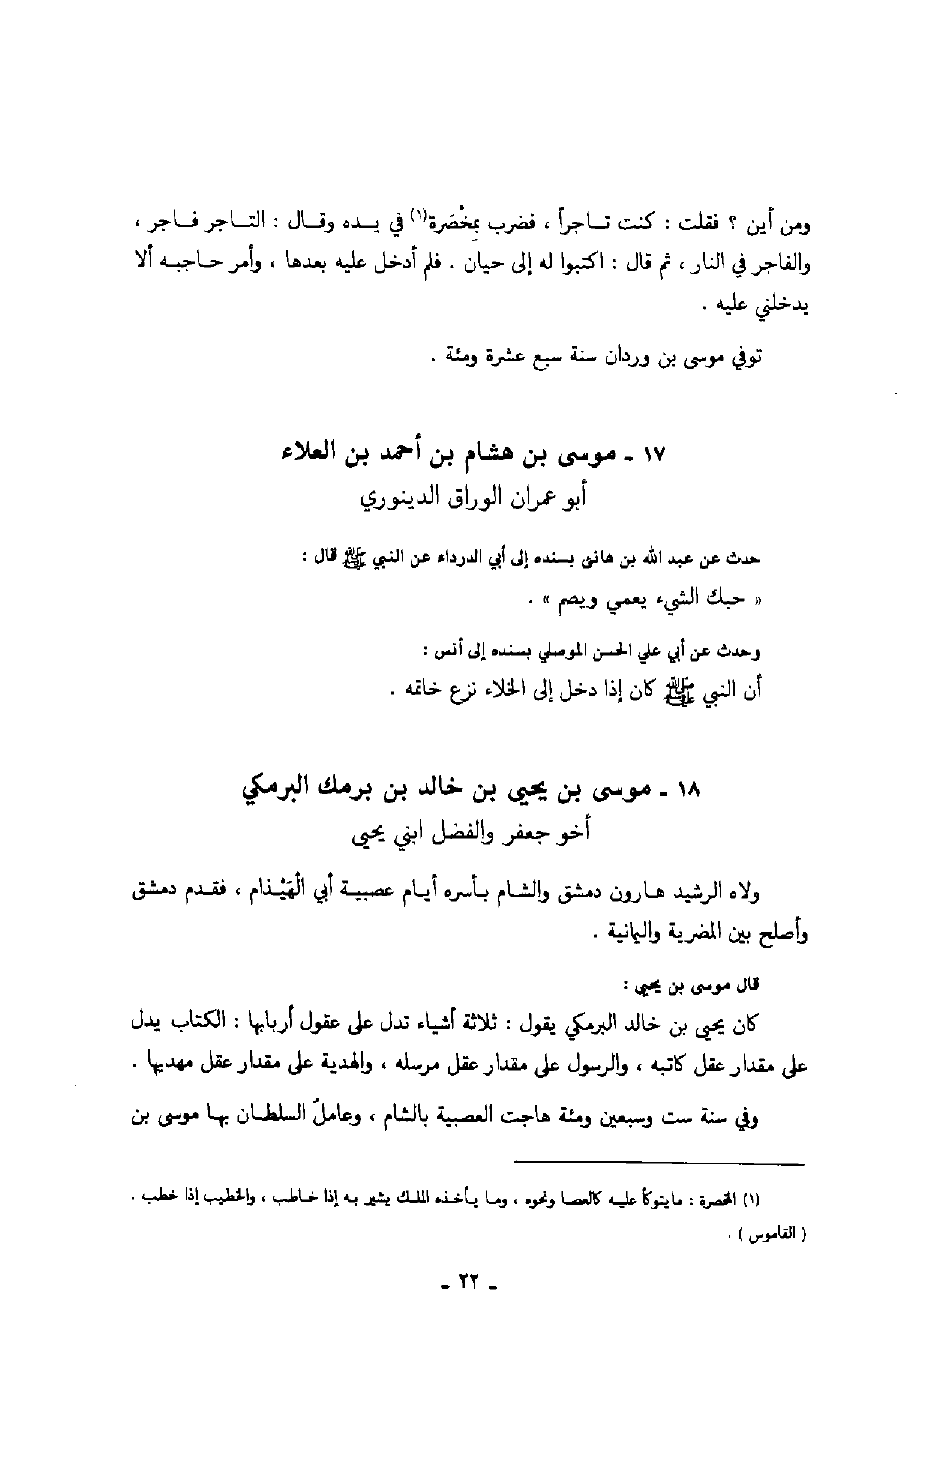 ومن أين ؟ فقلت : كنت تاجراً ، فضرب بِمخْصَرة(١) في يده وقال : التاجر فاجر ،
والفاجر في النار ، ثم قال : اكتبوا له إلى حيان . فلم أدخل عليه بعدها ، وأمر حاجبه ألا
يدخلني عليه .
توفي موسى بن وردان سنة سبع عشرة ومئة .
١٧ ـ موسى بن هشام بن أحمد بن العلاء
أبو عمران الوراق الدينوري
حدث عن عبد الله بن هانئ بسنده إلى أبي الدرداء عن النبي ﷺ قال :
« حبك الشيء يعمي ويصم » .
وحدث عن أبي علي الحسن الموصلي بسنده إلى أنس :
أن النبي ﷺ كان إذا دخل إلى الخلاء نزع خاتمه .
١٨ ـ موسى بن يحيى بن خالد بن برمك البرمكي
أخو جعفر والفضل ابني يحيى
ولاه الرشيد هارون دمشق والشام بأسره أيام عصبية أبي الْهَيْذام ، فقدم دمشق
وأصلح بين المضرية واليمانية .
قال موسى بن يحيى :
كان يحيى بن خالد البرمكي يقول : ثلاثة أشياء تدل على عقول أربابها : الكتاب يدل
على مقدار عقل كاتبه ، والرسول على مقدار عقل مرسله ، والهدية على مقدار عقل مهديها .
وفي سنة ست وسبعين ومئة هاجت العصبية بالشام ، وعاملُ السلطان بها موسى بن
(١) المخصرة : مايتوكأ عليه كالعصا ونحوه ، وما يأخذه الملك يشير به إذا خاطب ، والخطيب إذا خطب .
( القاموس ) .
ـ ٢٢ ـ